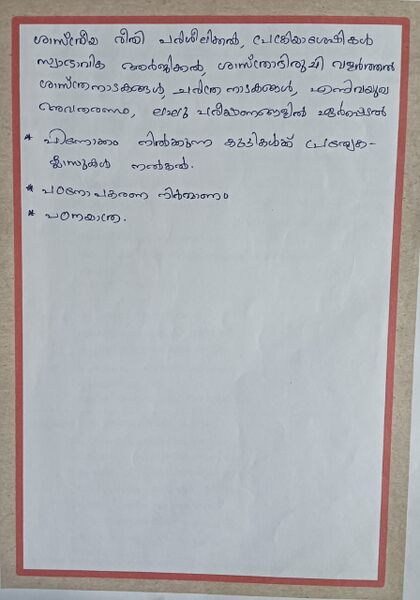 ശാസ്ത്രീയ രീതി പരിശീലിക്കൽ, പ്രക്രിയാശേഷികൾ
സ്വാഭാവിക ആർജിക്കൽ, ശാസ്ത്രാഭിരുചി വളർത്തൽ
ശാസ്ത്രനാടകങ്ങൾ, ചരിത്ര നാടകങ്ങൾ, എന്നിവയുടെ
അവതരണം, ലഘു പരീക്ഷണങ്ങളിൽ ഏർപ്പെടൽ
* പിന്നോക്കം നിൽക്കുന്ന കുട്ടികൾക്ക് പ്രത്യേക-
ക്ലാസുകൾ നൽകൽ.
* പഠനോപകരണ നിർമ്മാണം
* പഠനയാത്ര.